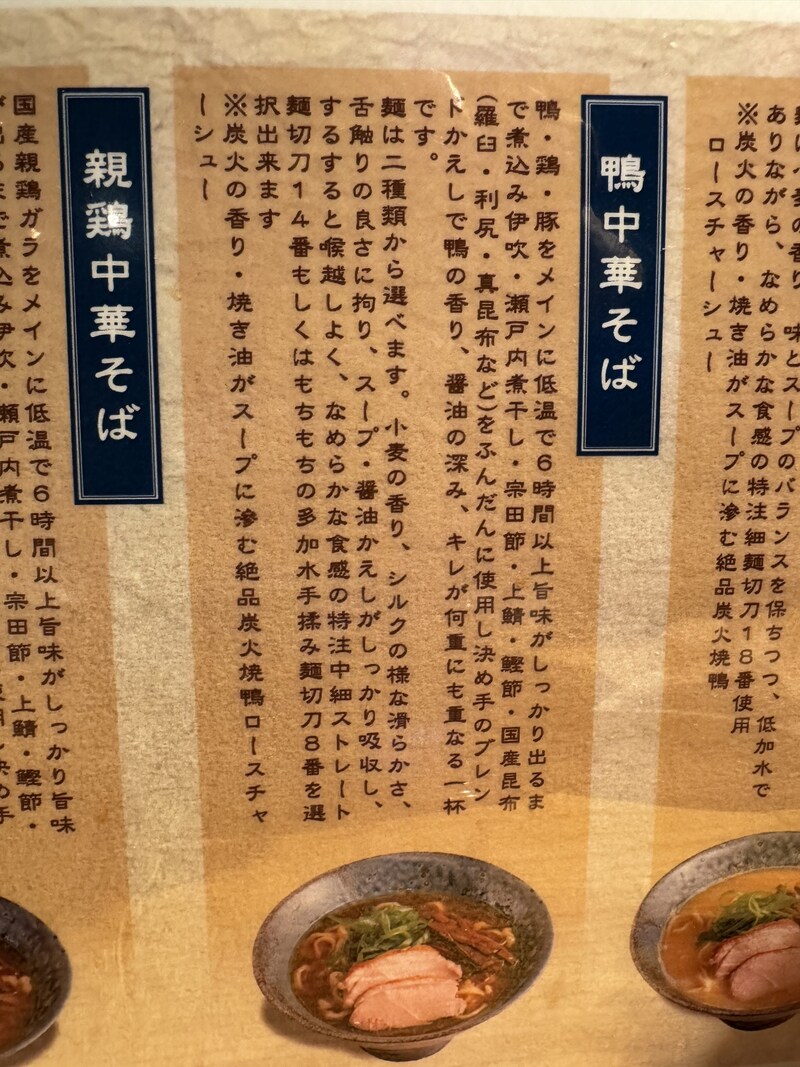 麺は小麦の香り、味とスープのバランスを保ちつつ、低加水で
ありながら、なめらかな食感の特注細麺切刀18番使用
※炭火の香り・焼き油がスープに滲む絶品炭火焼鴨
ロースチャーシュー
鴨中華そば
鴨・鶏・豚をメインに低温で6時間以上旨味がしっかり出るま
で煮込み伊吹・瀬戸内煮干し・宗田節・上鯖・鰹節・国産昆布
(羅臼・利尻・真昆布など)をふんだんに使用し決め手のブレン
ドかえしで鴨の香り、醤油の深み、キレが何重にも重なる一杯
です。
麺は二種類から選べます。小麦の香り、シルクの様な滑らかさ、
舌触りの良さに拘り、スープ・醤油かえしがしっかり吸収し、
するすると喉越しよく、なめらかな食感の特注中細ストレート
麺切刀14番もしくはもちもちの多加水手揉み麺切刀8番を選
択出来ます
※炭火の香り・焼き油がスープに滲む絶品炭火焼鴨ロースチャ
ーシュー
親鶏中華そば
国産親鶏ガラをメインに低温で6時間以上旨味がしっかり旨味
が出るまで煮込み伊吹・瀬戸内煮干し・宗田節・上鯖・鰹節・